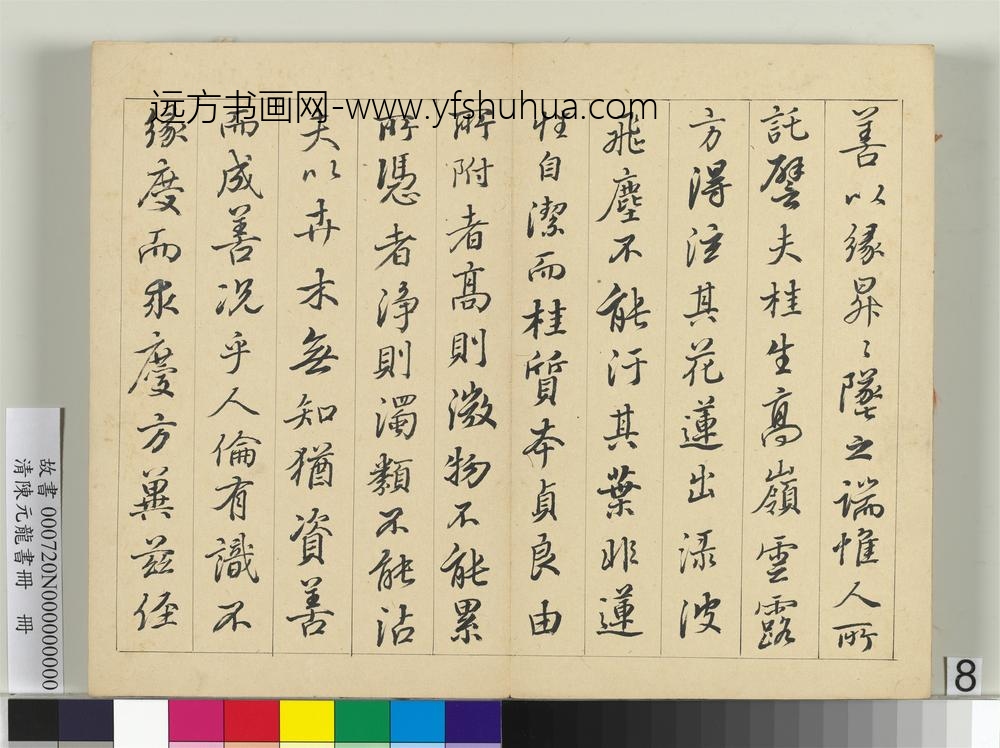 远方书画网-www.yfshuhua.com
善以緣昇々墜之端惟人所
託譬夫桂生高嶺雲露
方得泫其花蓮出淥波
飛塵不能汙其葉非蓮
性自潔而桂質本貞良由
所附者高則微物不能累
所憑者淨則濁類不能沾
夫以卉木無知猶資善
而成善況乎人倫有識不
緣慶而求慶方冀茲經
故書 000720N000000000
清陳元龍書冊 冊
8